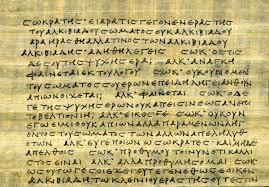 CΩΚΡΑΤΗC·ΕΙΑΡΑΤΙCΓΕΓΟΝΕΝΕΡΑCΤΗC
ΤΟΥΑΛΚΙΒΙΑΔΟΥCΩΜΑΤΟCΟΥΚΑΛΚΙΒΙΑΔΟΥ
ΑΡΑΗΡΑCΘΗΑΛΛΑΤΙΝΟCΤΩΝΑΛΚΙΒΙΑΔΟΥ
ΑΛΚΙΒΙΑΔΗC·ΑΛΗΘΗΛΕΓΕΙC CΩΚ·ΟCΤΙC
ΔΕCΟΥΤΗCΨΥΧΗCΕΡΑΙ ΑΛΚ·ΑΝΑΓΚΗ
ΦΑΙΝΕΤΑΙΕΚΤΟΥΛΟΓΟΥ CΩΚ·ΟΥΚΟΥΝΟΜΕΝ
ΤΟΥCΩΜΑΤΟCCΟΥΕΡΩΝΕΠΕΙΔΗΛΗΓΕΙΑΝΘΟΥΝ
ΑΠΙΩΝΟΙΧΕΤΑΙ ΑΛΚ·ΦΑΙΝΕΤΑΙ CΩΚ·ΟΔΕ
ΓΕΤΗCΨΥΧΗCΕΡΩΝΟΥΚΑΠΕΙCΙΝΕΩCΑΝΙΗΙ
ΕΠΙΤΟΒΕΛΤΙΟΝ ΑΛΚ·ΕΙΚΟCΓΕ CΩΚ·ΟΥΚΟΥΝ
ΕΓΩΕΙΜΙΟΟΥΚΑΠΙΩΝΑΛΛΑΠΑΡΑΜΕΝΩΝΛΗΓ
ΟΝΤΟCΤΟΥCΩΜΑΤΟCΤΩΝΑΛΛΩΝΑΠΕΛΗΛΥΘ
ΟΤΩΝ ΑΛΚ·ΕΥΓΕΠΟΙΩΝΩCΩΚΡΑΤΕC·ΚΑΙΜΗΔ
ΑΠΕΛΘΟΙC CΩΚ·ΠΡΟΘΥΜΟΥΤΟΙΝΥΝΟΤΙΚΑΛΛΙ
CΤΟCΕΙΝΑΙ ΑΛΚ·ΑΛΛΑΠΡΟΘΥΜΗCΟΜΑΙ CΩΚ·
ΩCΟΥΤΩΓΕCΟΙΕΧΕΙ
ΑΛΚΙΒΙΑΔΗΙΤΩΙΚΛΕΙΝΙΟΥΕΡΑCΤΗC